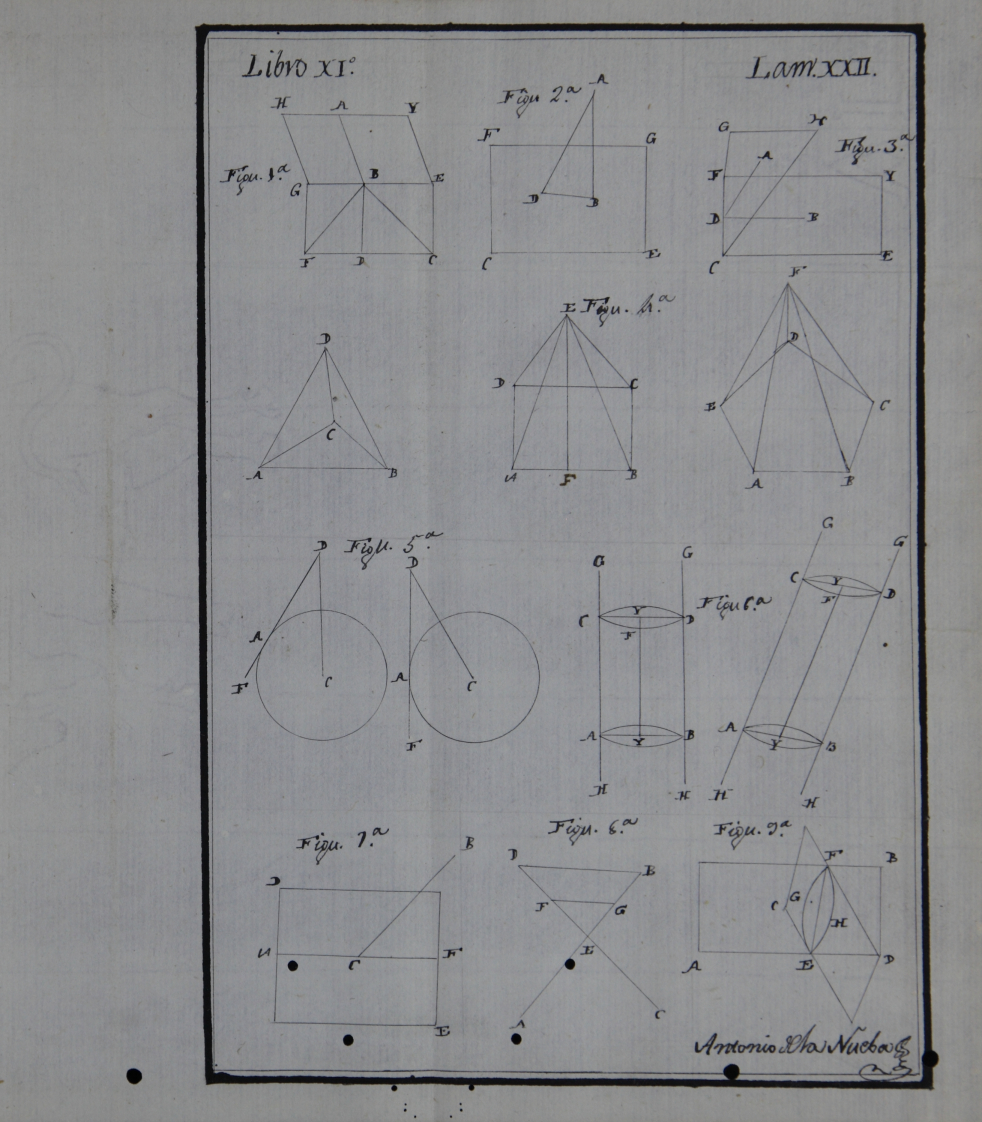 Libro XI.º
Lam. XXII.
Figu. 1.ª
H A Y
G B E
F D C
Figu. 2.ª
A
F G
D B
C E
Figu. 3.ª
G H
A
F Y
D B
C E
D
C
A B
Figu. 4.ª
E
D C
A F B
F
D
E C
A B
Figu. 5.ª
D
A
F
C
D
A C
F
Figu. 6.ª
G G
C Y D
F
A Y B
H H
G G
C Y D
F
A Y B
H H
Figu. 7.ª
B
D
C F
E
Figu. 8.ª
D B
F G
E
A C
Figu. 9.ª
F B
C G H
A E D
Antonio de la Nueba